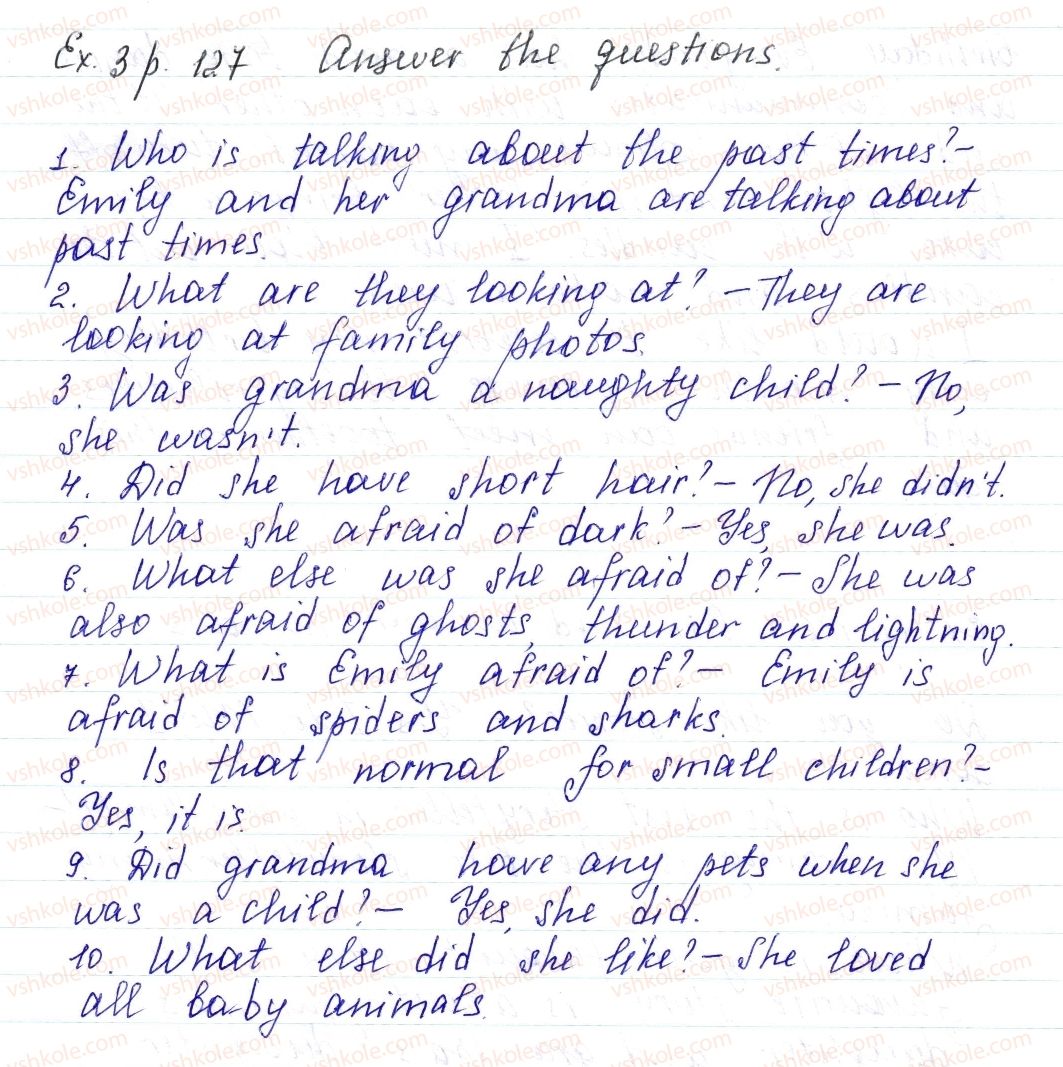 Ex. 3 p. 127 Answer the questions.
1. Who is talking about the past times? -
Emily and her grandma are talking about
past times.
2. What are they looking at? - They are
looking at family photos.
3. Was grandma a naughty child? - No,
she wasn't.
4. Did she have short hair? - No, she didn't.
5. Was she afraid of dark? - Yes, she was.
6. What else was she afraid of? - She was
also afraid of ghosts, thunder and lightning.
7. What is Emily afraid of? - Emily is
afraid of spiders and sharks.
8. Is that normal for small children? -
Yes, it is.
9. Did grandma have any pets when she
was a child? - Yes, she did.
10. What else did she like? - She loved
all baby animals.